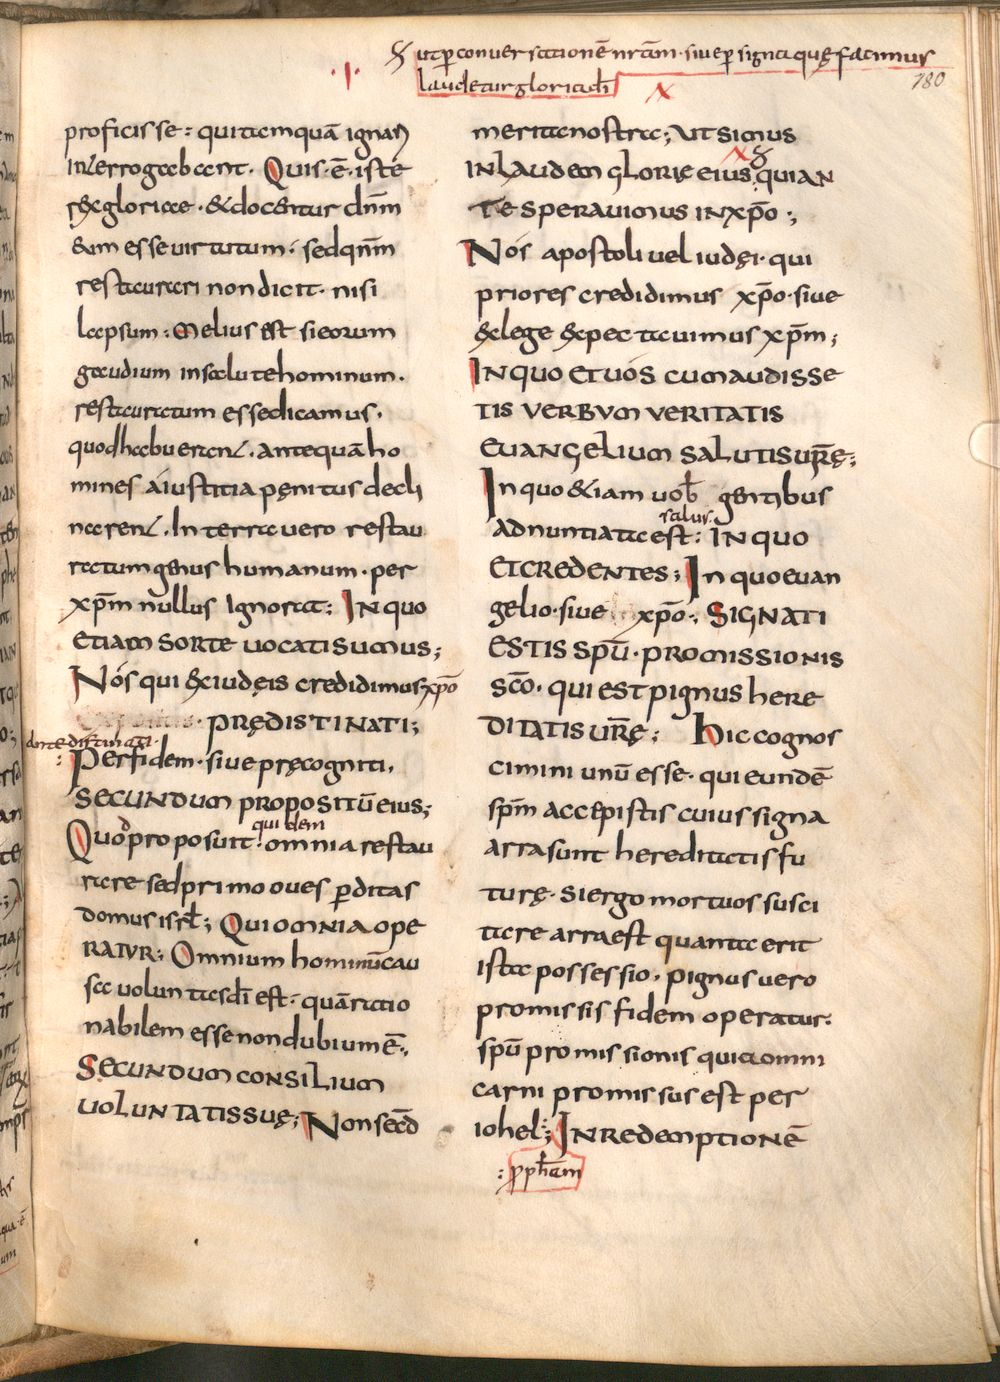 ut p conversationē nr̄am · sive p signa quę facimus
laudetur gloria dī
·I·
180
proficisse : qui tamquā ignari
interrogabant · Quis · ē · iste
rex gloriae · & docentur dn̄m
eum esse virtutum · sed qn̄m
restaurari non dicit · nisi
lapsum : Melius est si eorum
gaudium in salute hominum ·
restauratum esse dicamus ·
quod habuerunt · antequā ho
mines a iustitia pęnitus decli
narent · In terra vero restau
ratum genus humanum · per
xp̄m nullus ignorat : In quo
etiam sorte vocati sumus ;
Nos qui ex iudęis credidimus xp̄o
· Prędistinati ;
Per fidem · sive pręcogniti ·
Secundum propositū eius ;
quidem
Quod proposuit · omnia restau
rare sed primo oves p̄ditas
domus isrl̄ ; Qui omnia ope
ratur : Omnium hominū cau
sa voluntas dī est · quā ratio
nabilem esse non dubium ē ·
Secundum consilium
voluntatis suę ; Non secd̄
meritanostra ; ut simus
in laudem glorię eius qui an
te speravimus in xp̄o ;
Nos apostoli vel iudęi · qui
priores credidimus xp̄o · sive
& lege expectavimus xp̄m ;
In quo et vos cum audisse
tis verbum veritatis
evangelium salutis ur̄ę ;
In quo & iam vob̄ gentibus
salus
adnuntiata est : In quo
et credentes ; In quo evan
gelio · sive xp̄o · Signati
estis spū · promissionis
sc̄o · qui est pignus here
ditatis ur̄ę ; Hic cognos
cimini unū esse · qui eundē
spm̄ accepistis cuius signa
arra sunt hereditatis fu
turę · si ergo mortuos susci
tare arra est quanta erit
ista possessio · pignus vero
promissis fidem operatur ·
spū promissionis quia omni
carni promissus est per
iohel · ; In redemptionē
: p̄ph̄am